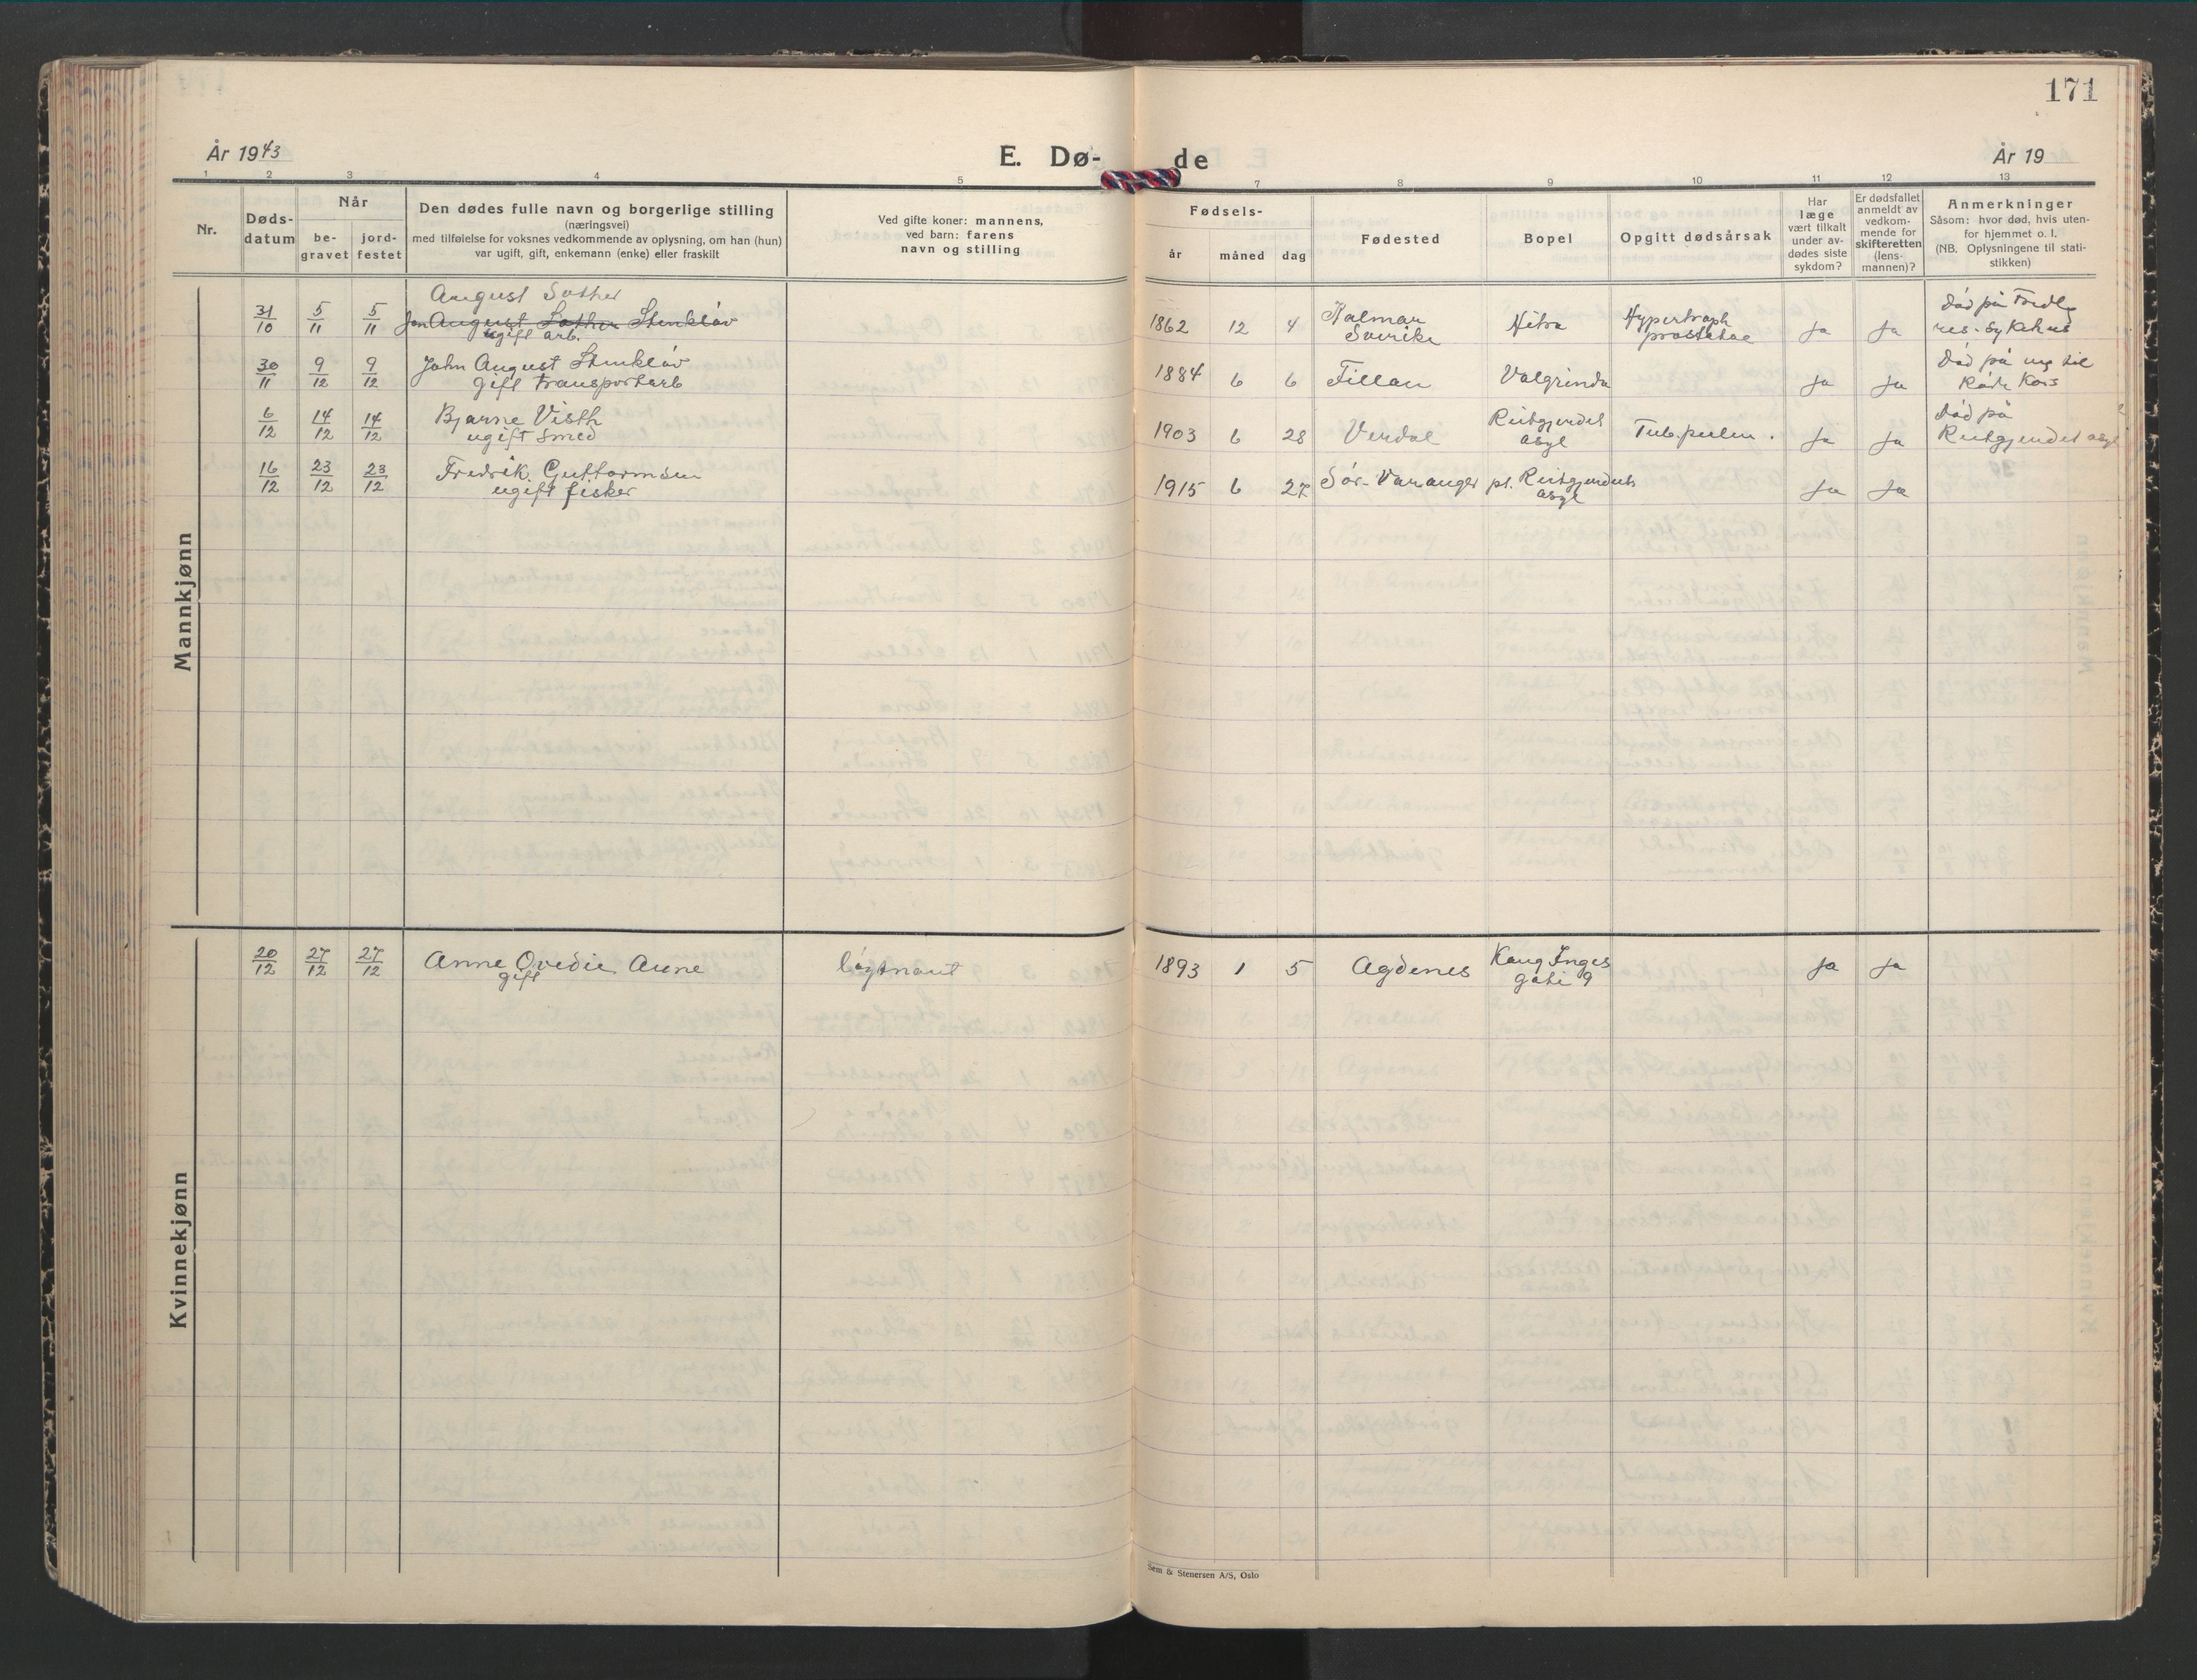 171
År 1943
E. Dø-
de
År 19
1 2 3 4 5 7 8 9 10 11 12 13
Nr.
Døds-
datum
Når
be-
gravet
jord-
festet
Den dødes fulle navn og borgerlige stilling
(næringsvei)
med tilføielse for voksnes vedkommende av oplysning, om han (hun)
var ugift, gift, enkemann (enke) eller fraskilt
Ved gifte koner: mannens,
ved barn: farens
navn og stilling
Fødsels-
år måned dag
Fødested
Bopel
Opgitt dødsårsak
Har
læge
vært tilkalt
under av-
dødes siste
sykdom?
Er dødsfallet
anmeldt av
vedkom-
mende for
skifteretten
(lens-
mannen)?
Anmerkninger
Såsom: hvor død, hvis uten-
for hjemmet o. l.
(NB. Oplysningene til stati-
stikken)
Mannkjønn
August Sother
31/10 5/11 5/11 Jon August Sother Stenkløv
ugift arb.
1862 12 4 Kalmar
Sverike
Hitra
Hypertroph
prostatae
Ja Ja
Død på Trdh.
res. Sykehus
30/11 9/12 9/12 John August Stenkløv
gift transportarb
1884 6 6 Fillan Valgrinda Ja Ja
Død på veg til
Røde Kors
6/12 14/12 14/12 Bjarne Visth
ugift smed
1903 6 28 Verdal
Reitgjerdet
asyl
Tub. pulm. Ja Ja
Død på
Reitgjerdet asyl
16/12 23/12 23/12 Fredrik Guttormsen
ugift fisker
1915 6 27 Sør-Varanger pt. Reitgjerdets
asyl
Ja Ja
Kvinnekjønn
20/12 27/12 27/12 Anne Ovedie Aune
gift
løytnant
1893 1 5 Agdenes
Kong Inges
gate 9
Ja Ja
Sem & Stenersen A/S, Oslo